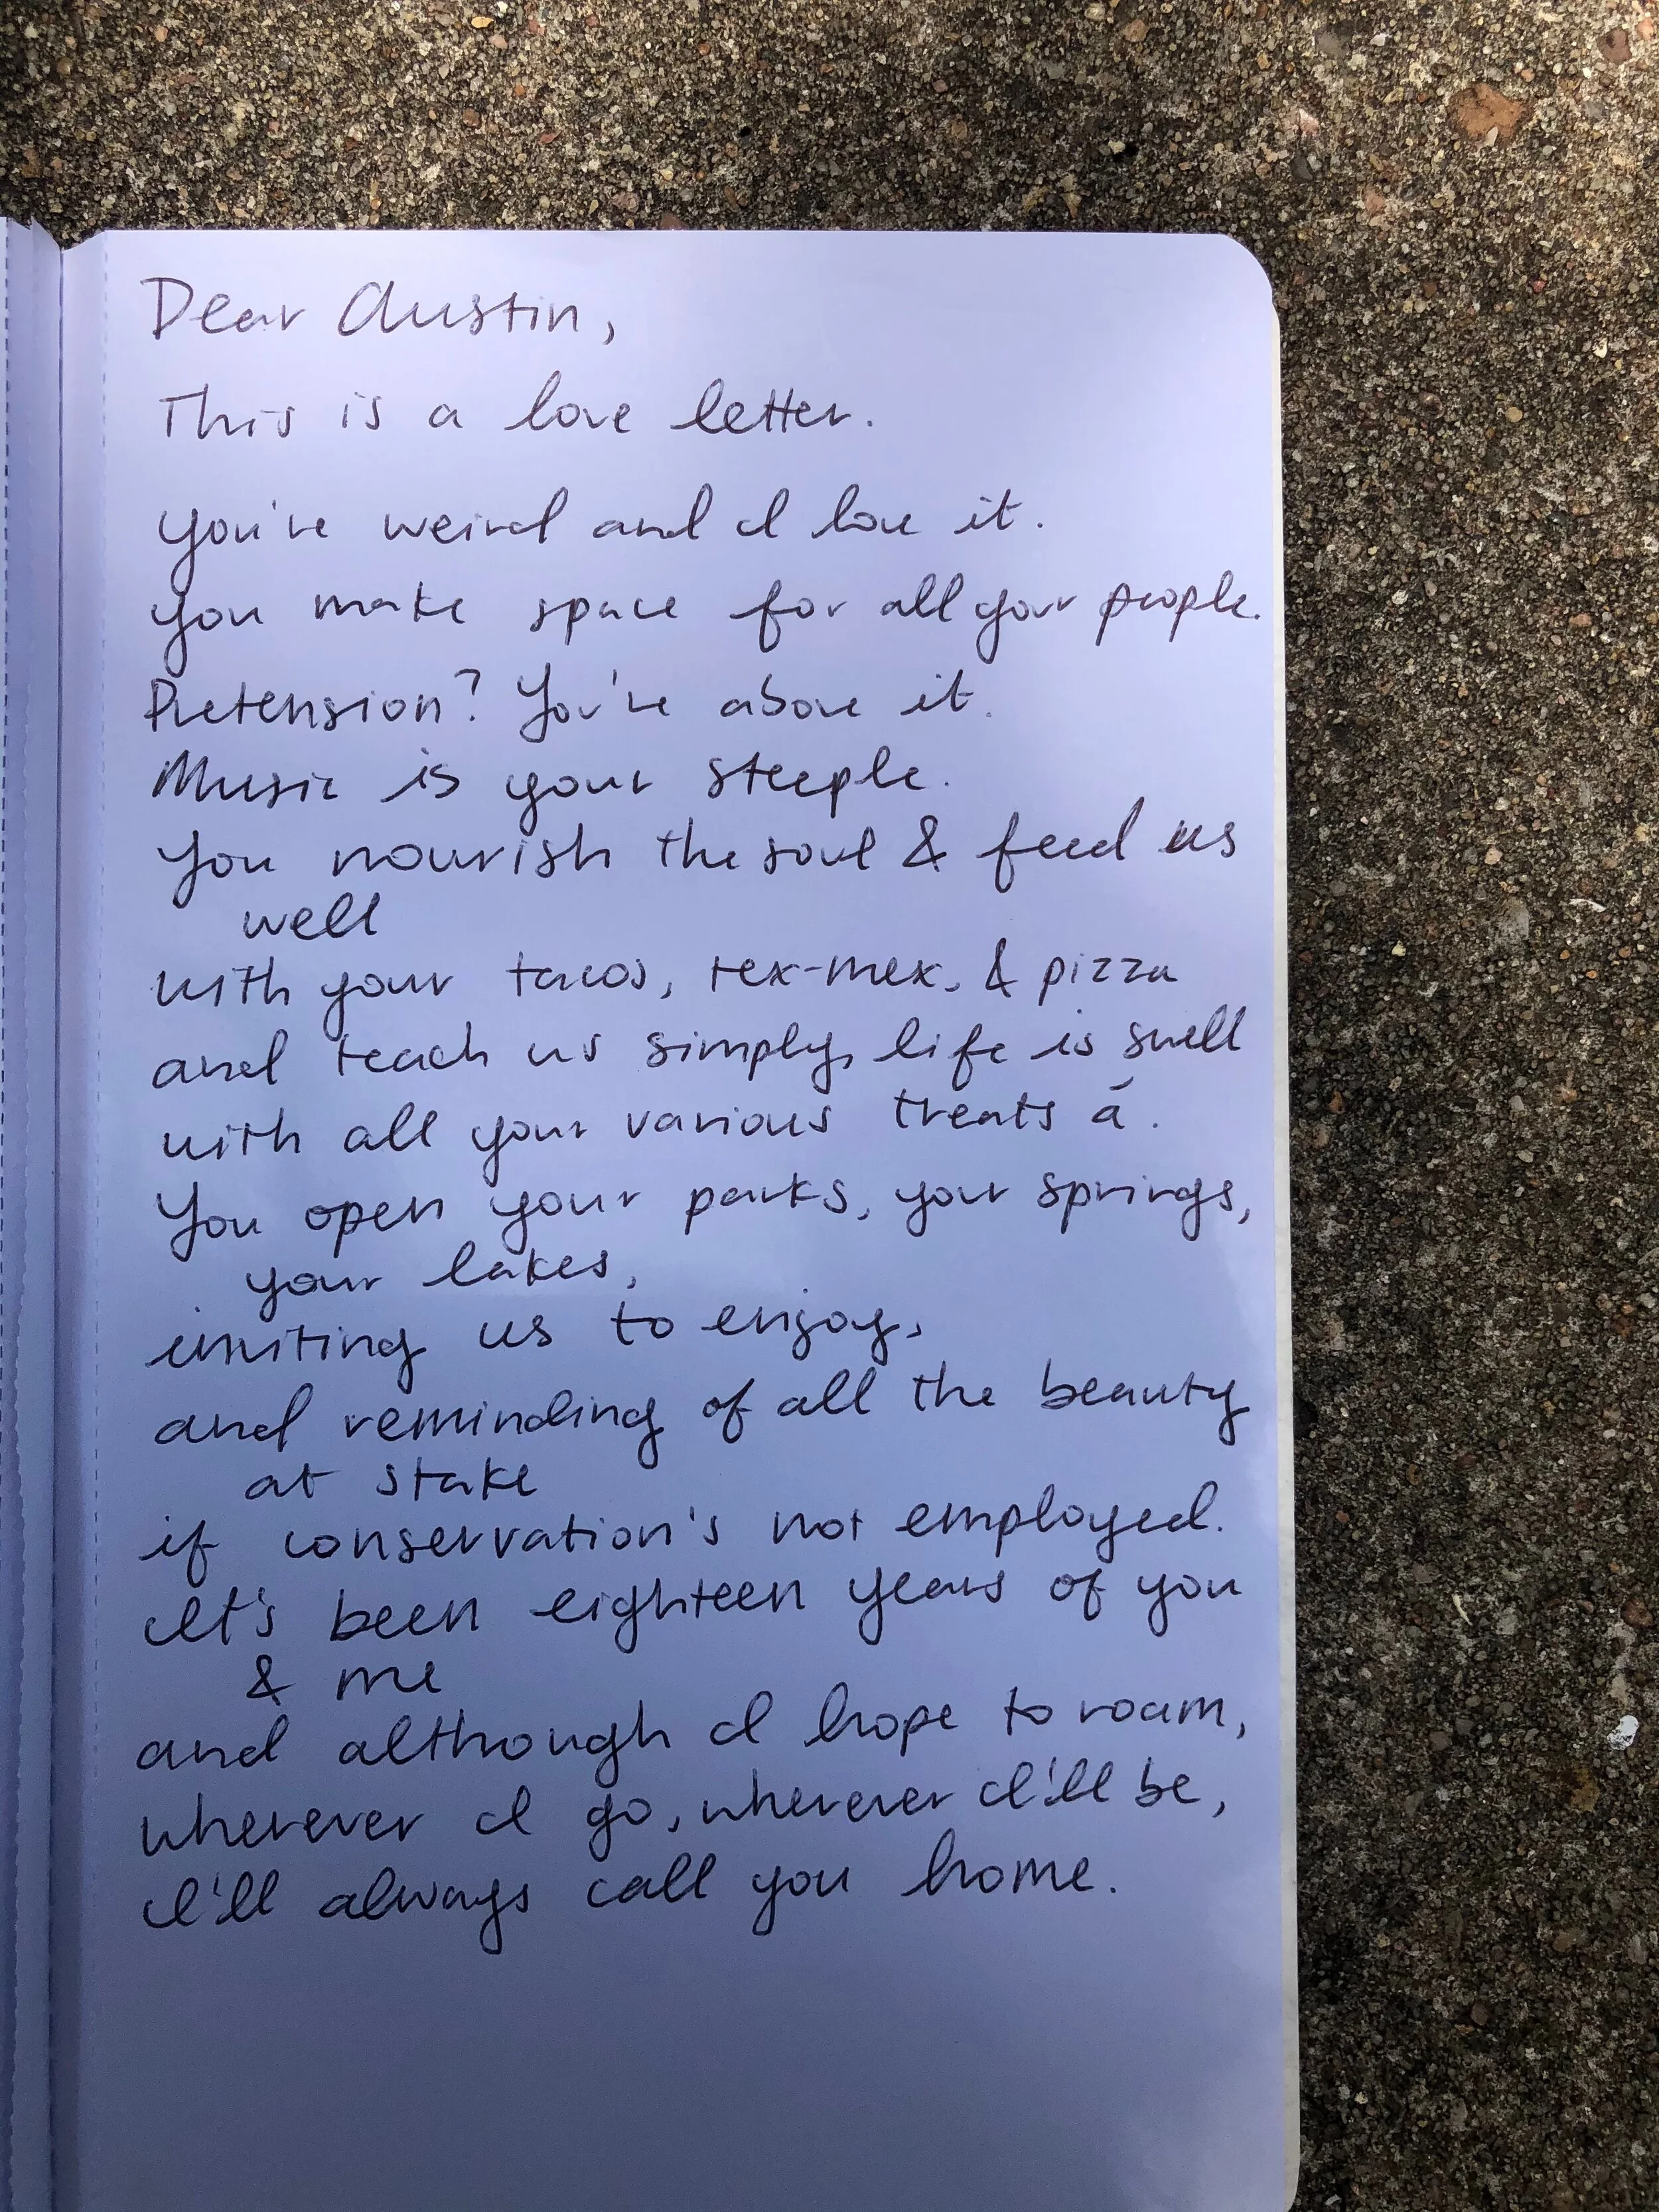 Dear Austin,
This is a love letter.
You're weird and I love it.
You make space for all your people.
Pretension? You're above it.
Music is your steeple.
You nourish the soul & feed us
well
with your tacos, tex-mex, & pizza
and teach us simply, life is swell
with all your various treats á.
You open your parks, your springs,
your lakes,
inviting us to enjoy,
and reminding of all the beauty
at stake
if conservation's not employed.
It's been eighteen years of you
& me
and although I hope to roam,
wherever I go, wherever I'll be,
I'll always call you home.